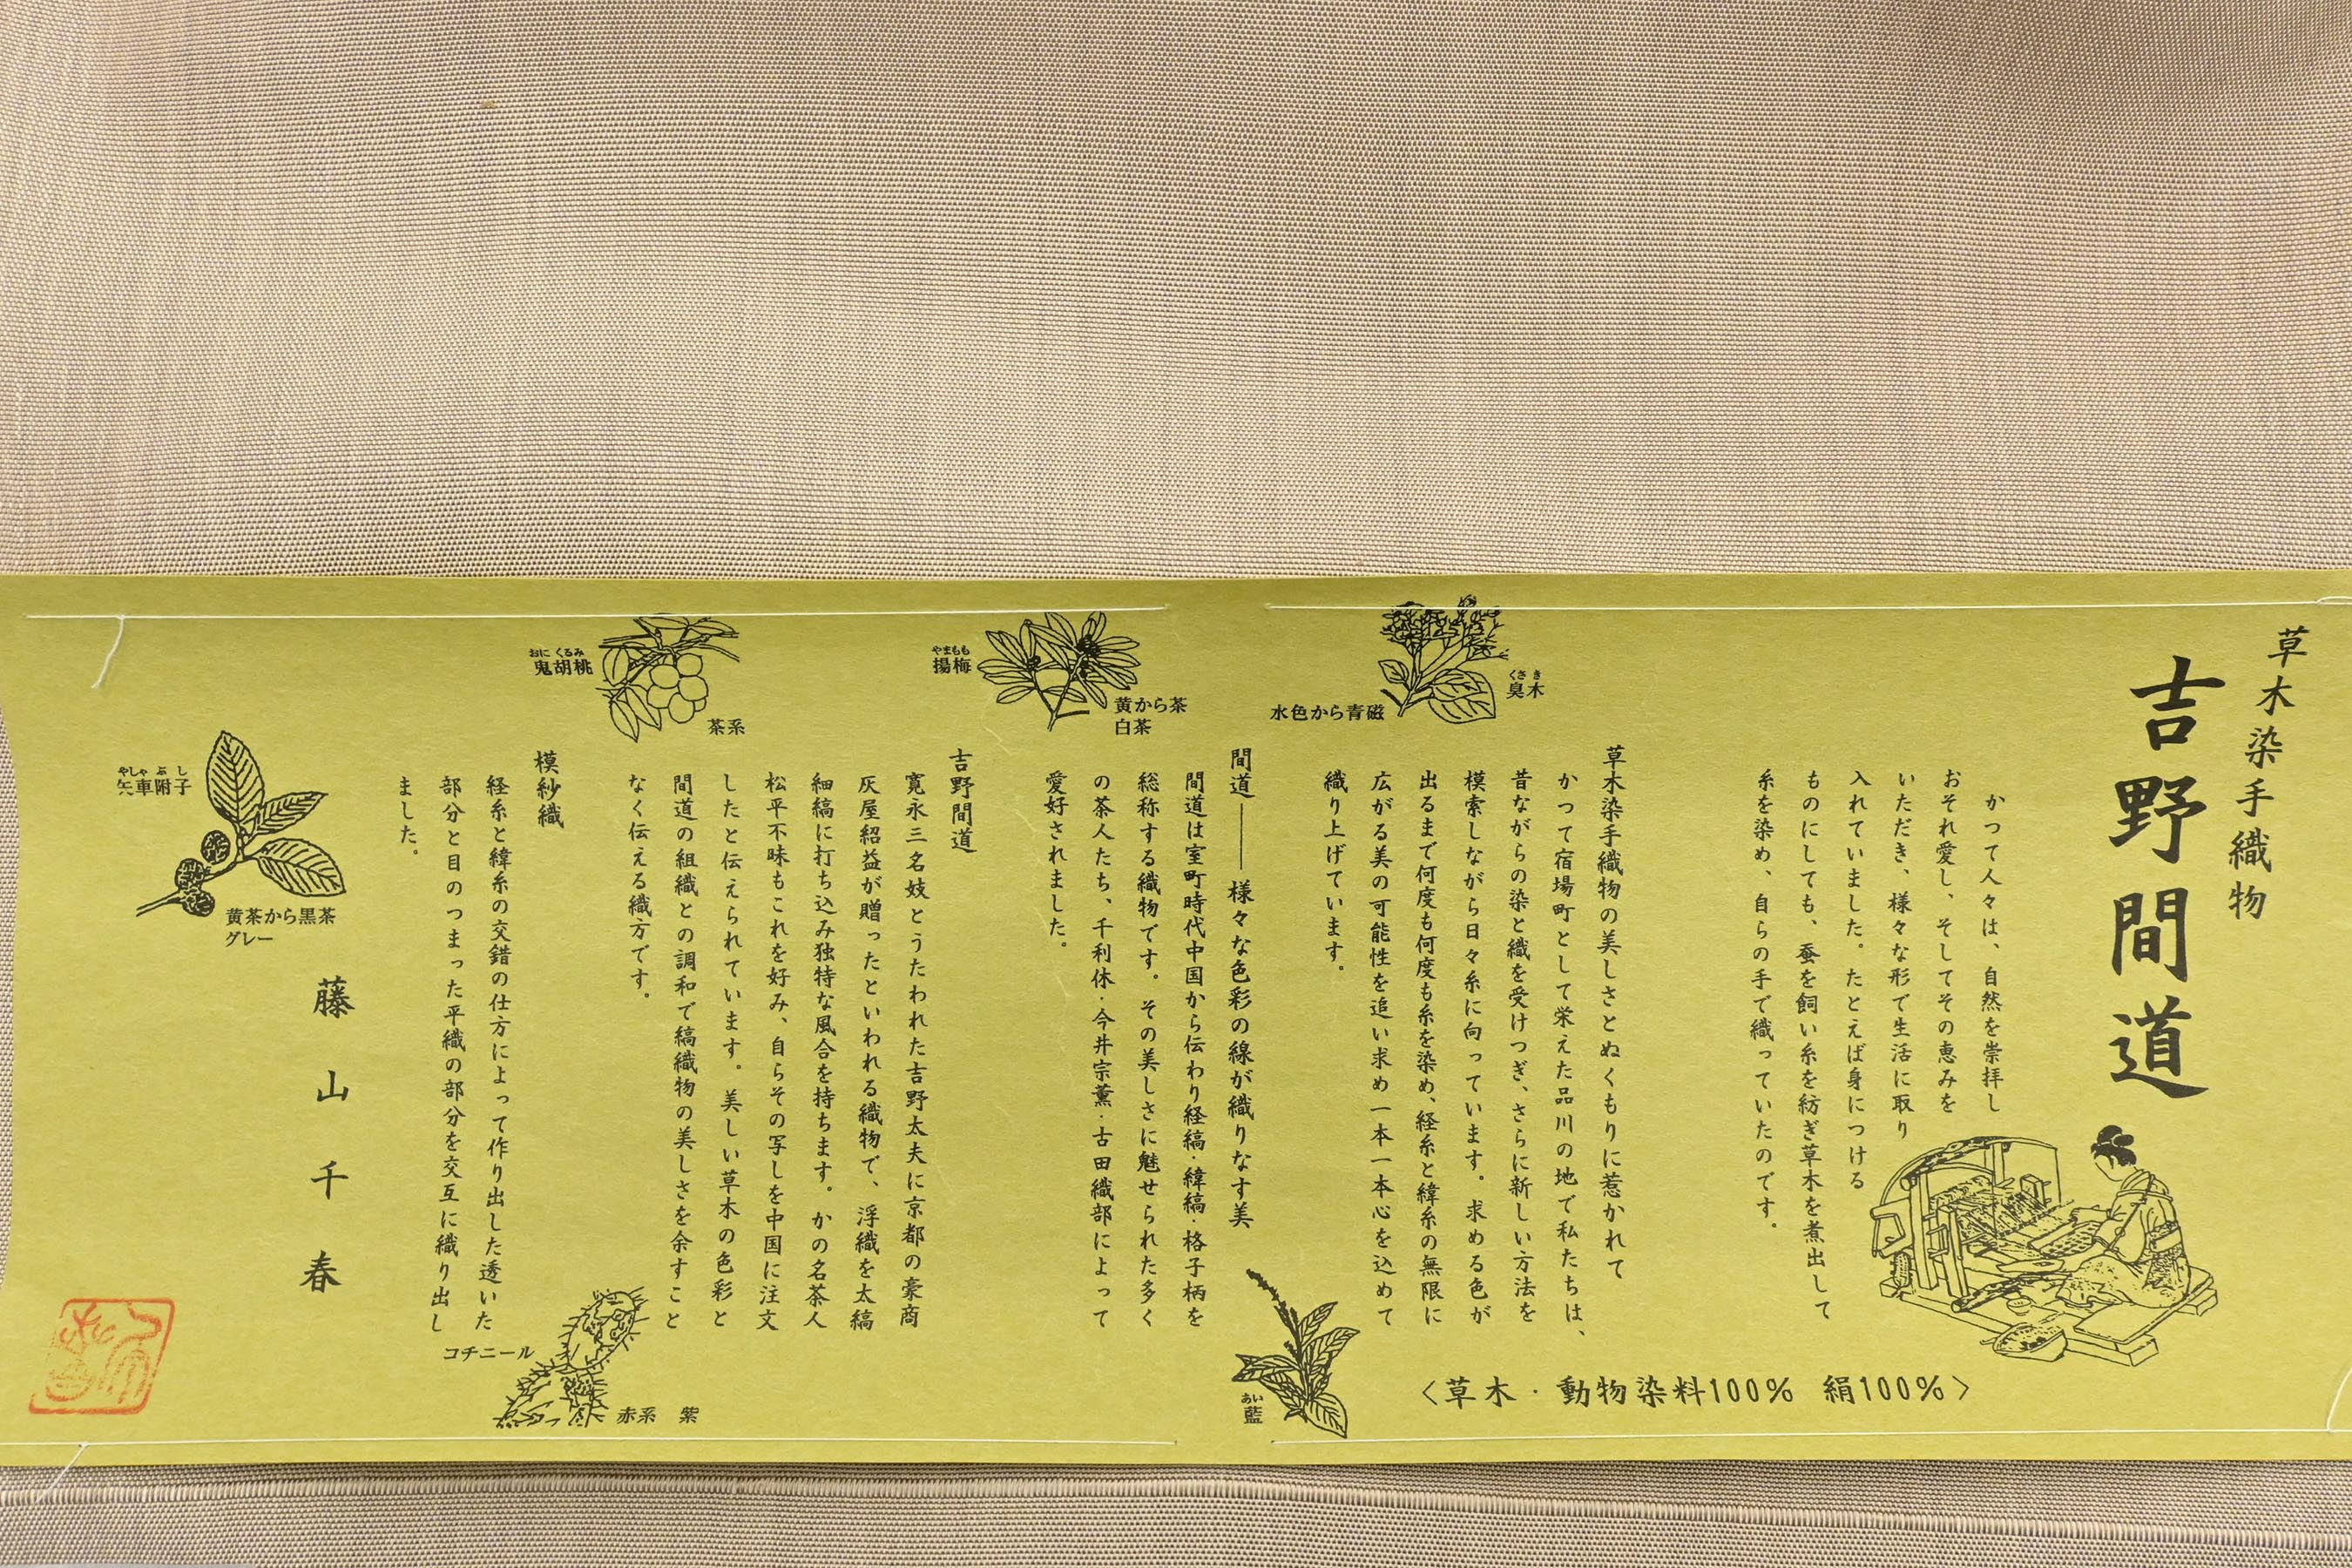 草木染手織物
吉野間道
かつて人々は、自然を崇拝し
おそれ愛し、そしてその恵みを
いただき、様々な形で生活に取り
入れていました。たとえば身につける
ものにしても、蚕を飼い糸を紡ぎ草木を煮出して
糸を染め、自らの手で織っていたのです。
〈草木・動物染料100% 絹100%〉
草木染手織物の美しさとぬくもりに惹かれて
かつて宿場町として栄えた品川の地で私たちは、
昔ながらの染と織を受けつぎ、さらに新しい方法を
模索しながら日々糸に向っています。求める色が
出るまで何度も何度も糸を染め、経糸と緯糸の無限に
広がる美の可能性を追い求め一本一本心を込めて
織り上げています。
くさき
臭木
水色から青磁
間道――様々な色彩の線が織りなす美
間道は室町時代中国から伝わり経縞・緯縞・格子柄を
総称する織物です。その美しさに魅せられた多く
の茶人たち、千利休・今井宗薫・古田織部によって
愛好されました。
あい
藍
やまもも
揚梅
黄から茶
白茶
吉野間道
寛永三名妓とうたわれた吉野太夫に京都の豪商
灰屋紹益が贈ったといわれる織物で、浮織を太縞
細縞に打ち込み独特な風合を持ちます。かの名茶人
松平不昧もこれを好み、自らその写しを中国に注文
したと伝えられています。美しい草木の色彩と
間道の組織との調和で縞織物の美しさを余すこと
なく伝える織方です。
おにくるみ
鬼胡桃
茶系
模紗織
経糸と緯糸の交錯の仕方によって作り出した透いた
部分と目のつまった平織の部分を交互に織り出し
ました。
コチニール
赤系 紫
やしゃぶし
矢車附子
黄茶から黒茶
グレー
藤山千春